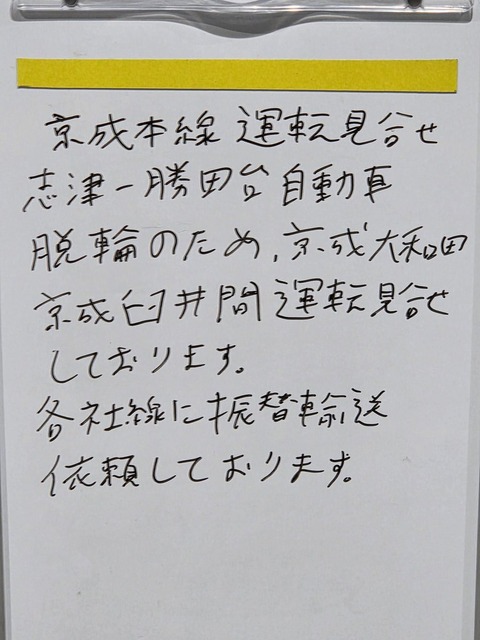 京成本線 運転見合せ
志津－勝田台 自動車
脱輪のため、京成大和田
京成臼井間 運転見合せ
しております。
各社線に振替輸送
依頼しております。